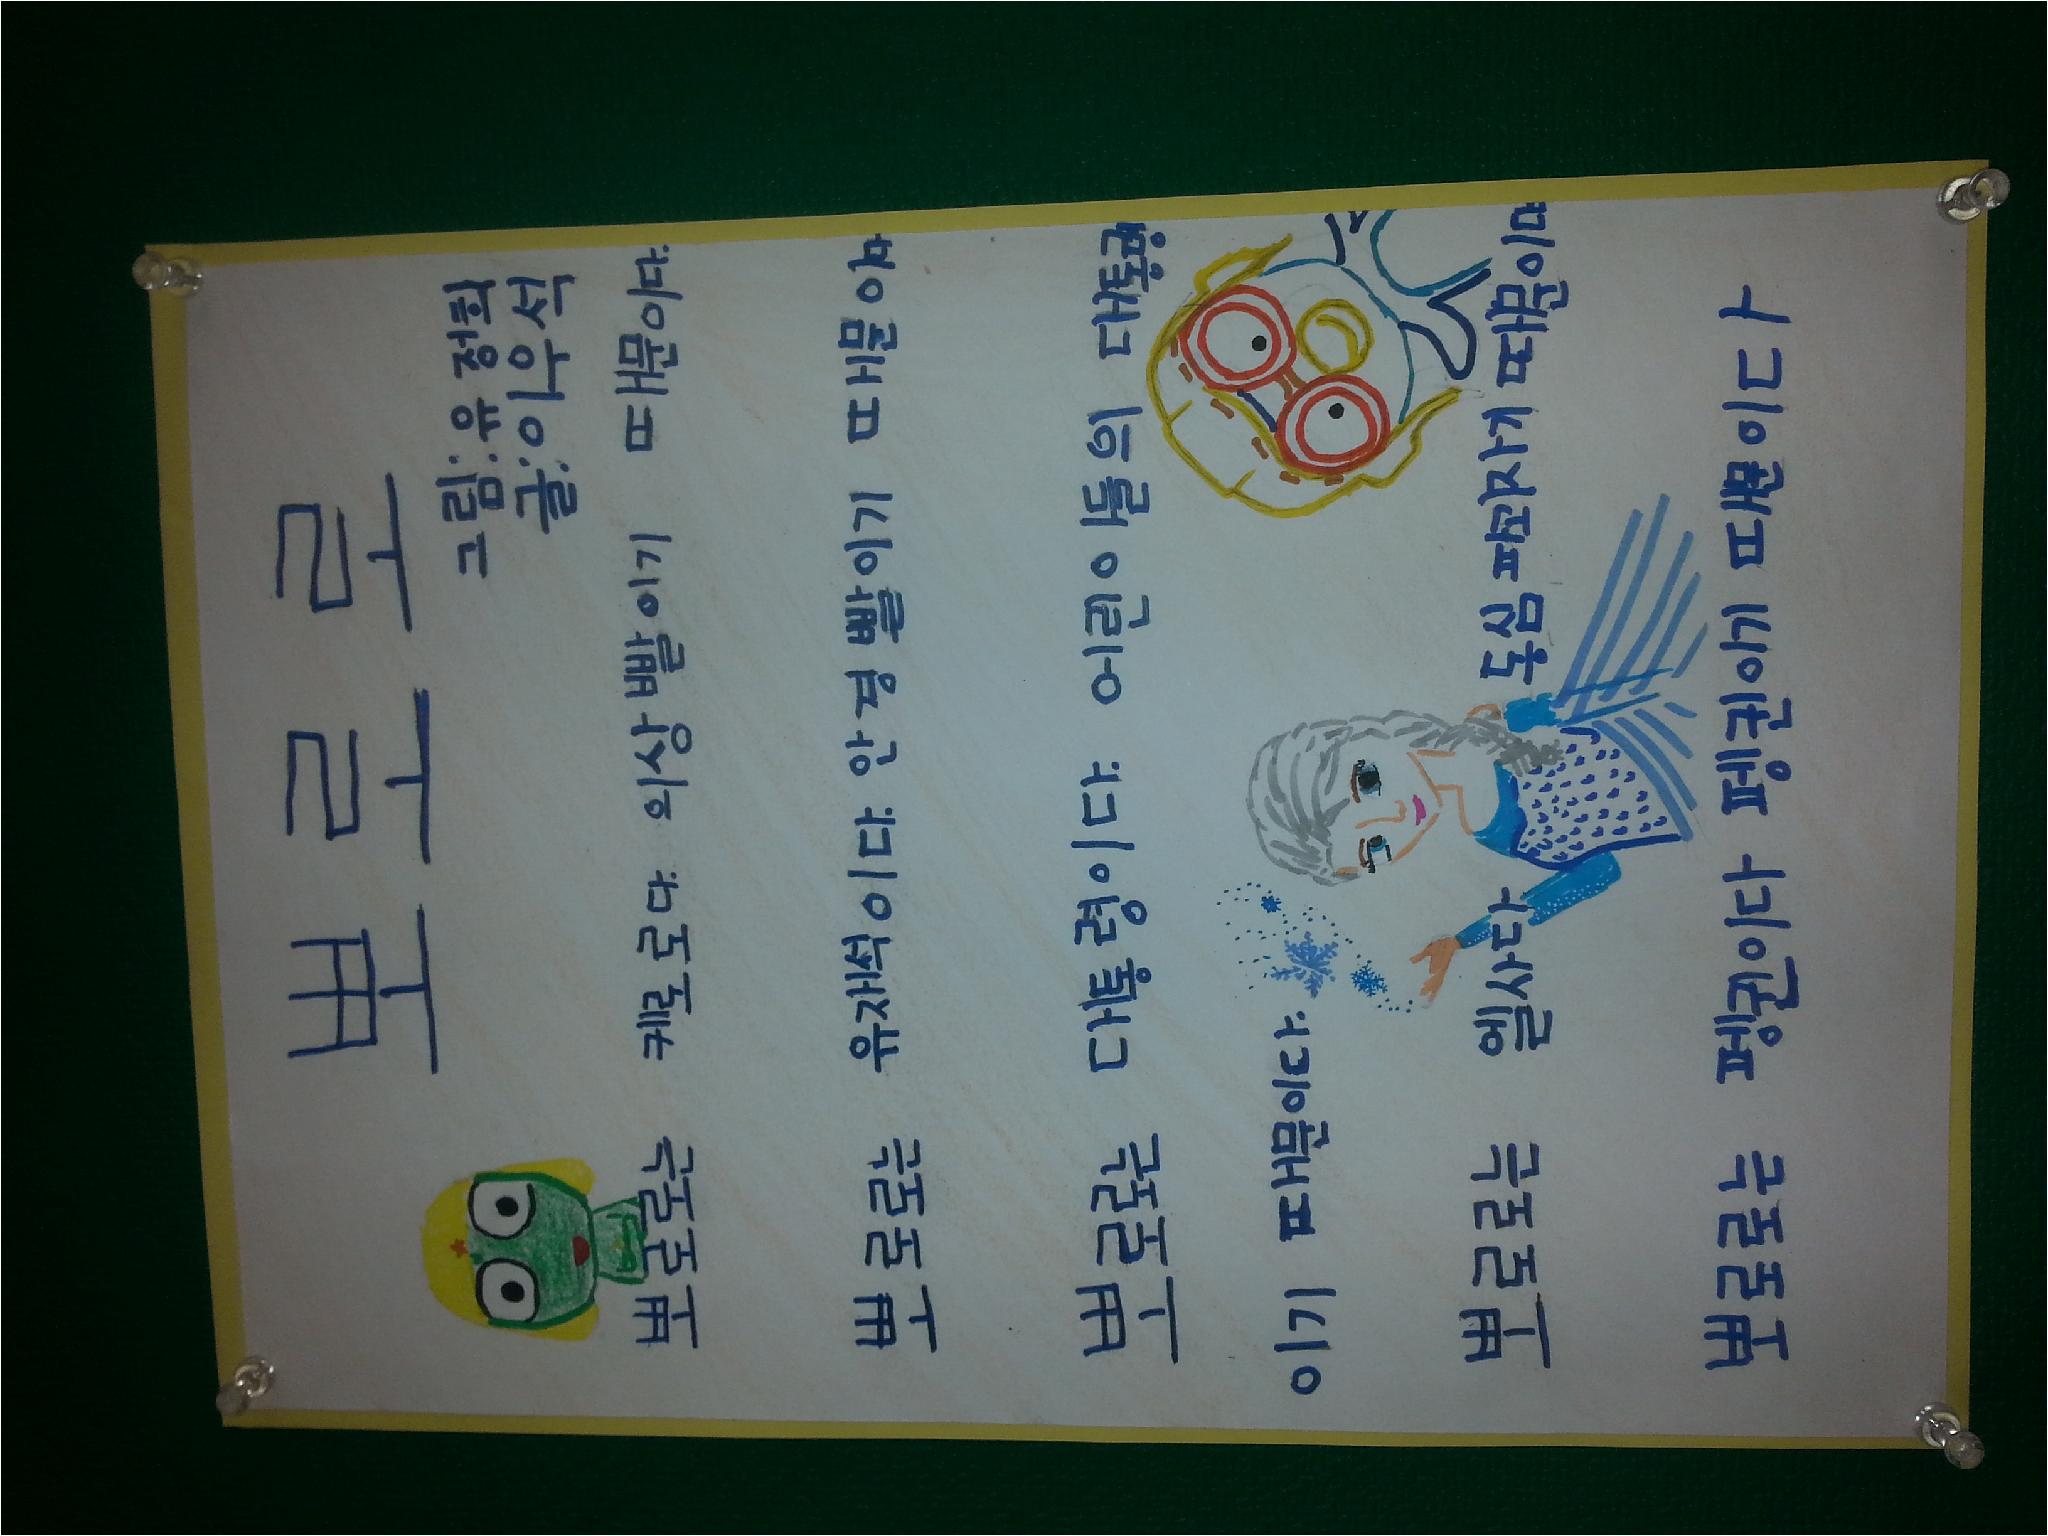 뽀로로
그림:유정희
글:이우석
뽀로로는 케로로다. 의상빨이기 때문이다.
뽀로로는 유재석이다. 안경빨이기 때문이다
뽀로로는 대통령이다. 어린이들의 대통령
이기 때문이다.
뽀로로는 엘사다 동심파괴자기 때문이다
뽀로로는 펭귄이다 펭귄이기 때문이다